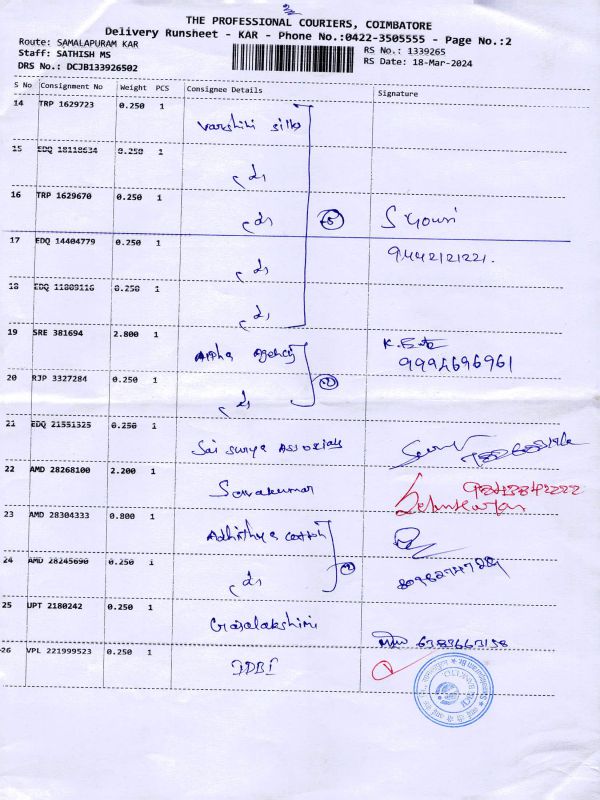 THE PROFESSIONAL COURIERS, COIMBATORE
Delivery Runsheet - KAR - Phone No.:0422-3505555 - Page No.:2
Route: SAMALAPURAM KAR
RS No.: 1339265
Staff: SATHISH MS
RS Date: 18-Mar-2024
DRS No.: DCJB133926502
S No Consignment No Weight PCS Consignee Details Signature
14 TRP 1629723 0.250 1 Varshini silks
15 EDQ 18118634 0.250 1
16 TRP 1629670 0.250 1
17 EDQ 14404779 0.250 1 9442121221.
18 EDQ 11809116 0.250 1
19 SRE 381694 2.800 1 Alpha agency 9994696961
20 RJP 3327284 0.250 1
21 EDQ 21551325 0.250 1 Sai surya Associates
22 AMD 28268100 2.200 1 9843842222
23 AMD 28304333 0.800 1
24 AMD 28245690 0.250 1
25 UPT 2180242 0.250 1 Gajalakshmi
26 VPL 221999523 0.250 1 IDBI